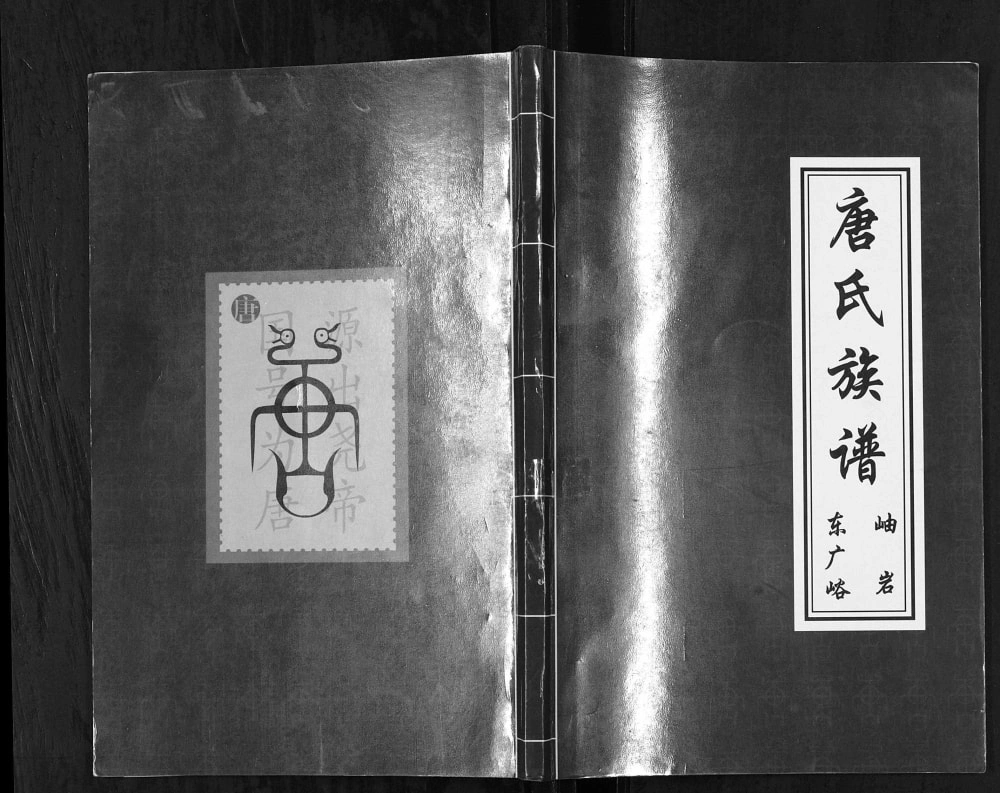 唐氏族谱
岫岩
东广峪
唐
源出尧帝
国号为唐